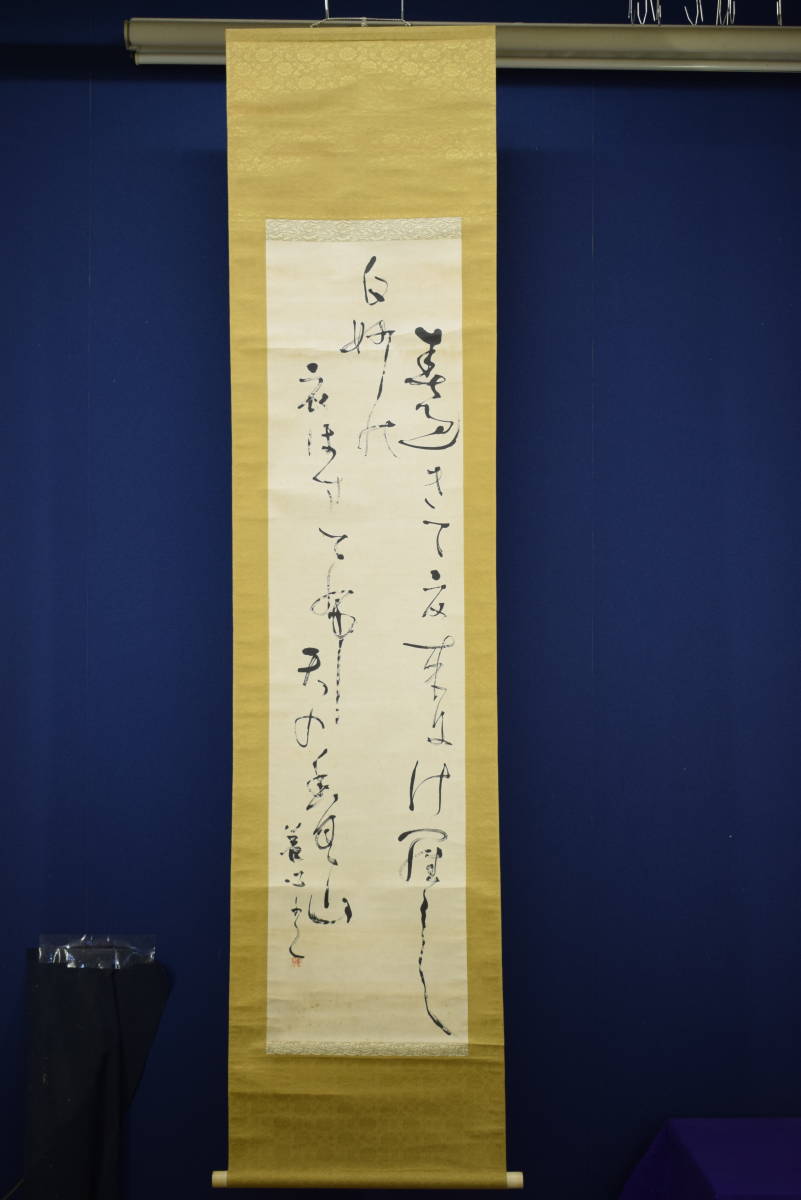 春過きて夏来に計羅し
白妙能
衣ほすてふ
天の香具山